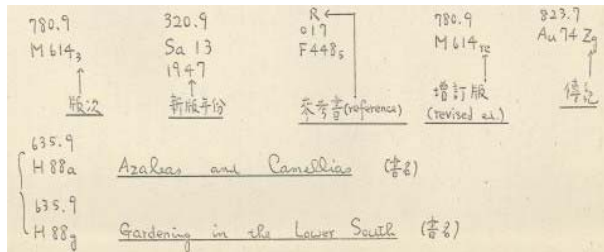 780.9
M614₃
版次
320.9
Sa 13
1947
新版年份
R
017
F448s
參考書(reference)
780.9
M614re
增訂版
(revised ed.)
823.7
Au 74 Zg
傳記
635.9
H 88a Azaleas and Camellias (書名)
635.9
H 88g Gardening in the Lower South (書名)